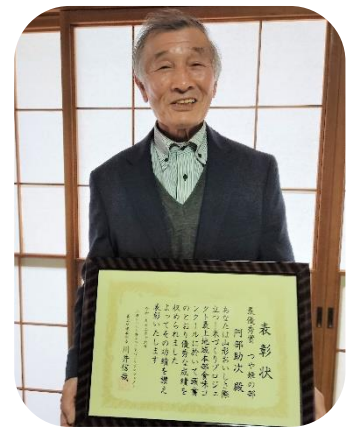 表彰状
最優秀賞 つや姫の部
阿部助次 殿
あなたは山形おいしさ際
立つ!米づくりプロジェ
クト最上地域本部食味コ
ンクールに於いて頭書
のとおり優秀な成績を
収められました
よってその功績を讃え
表彰いたします